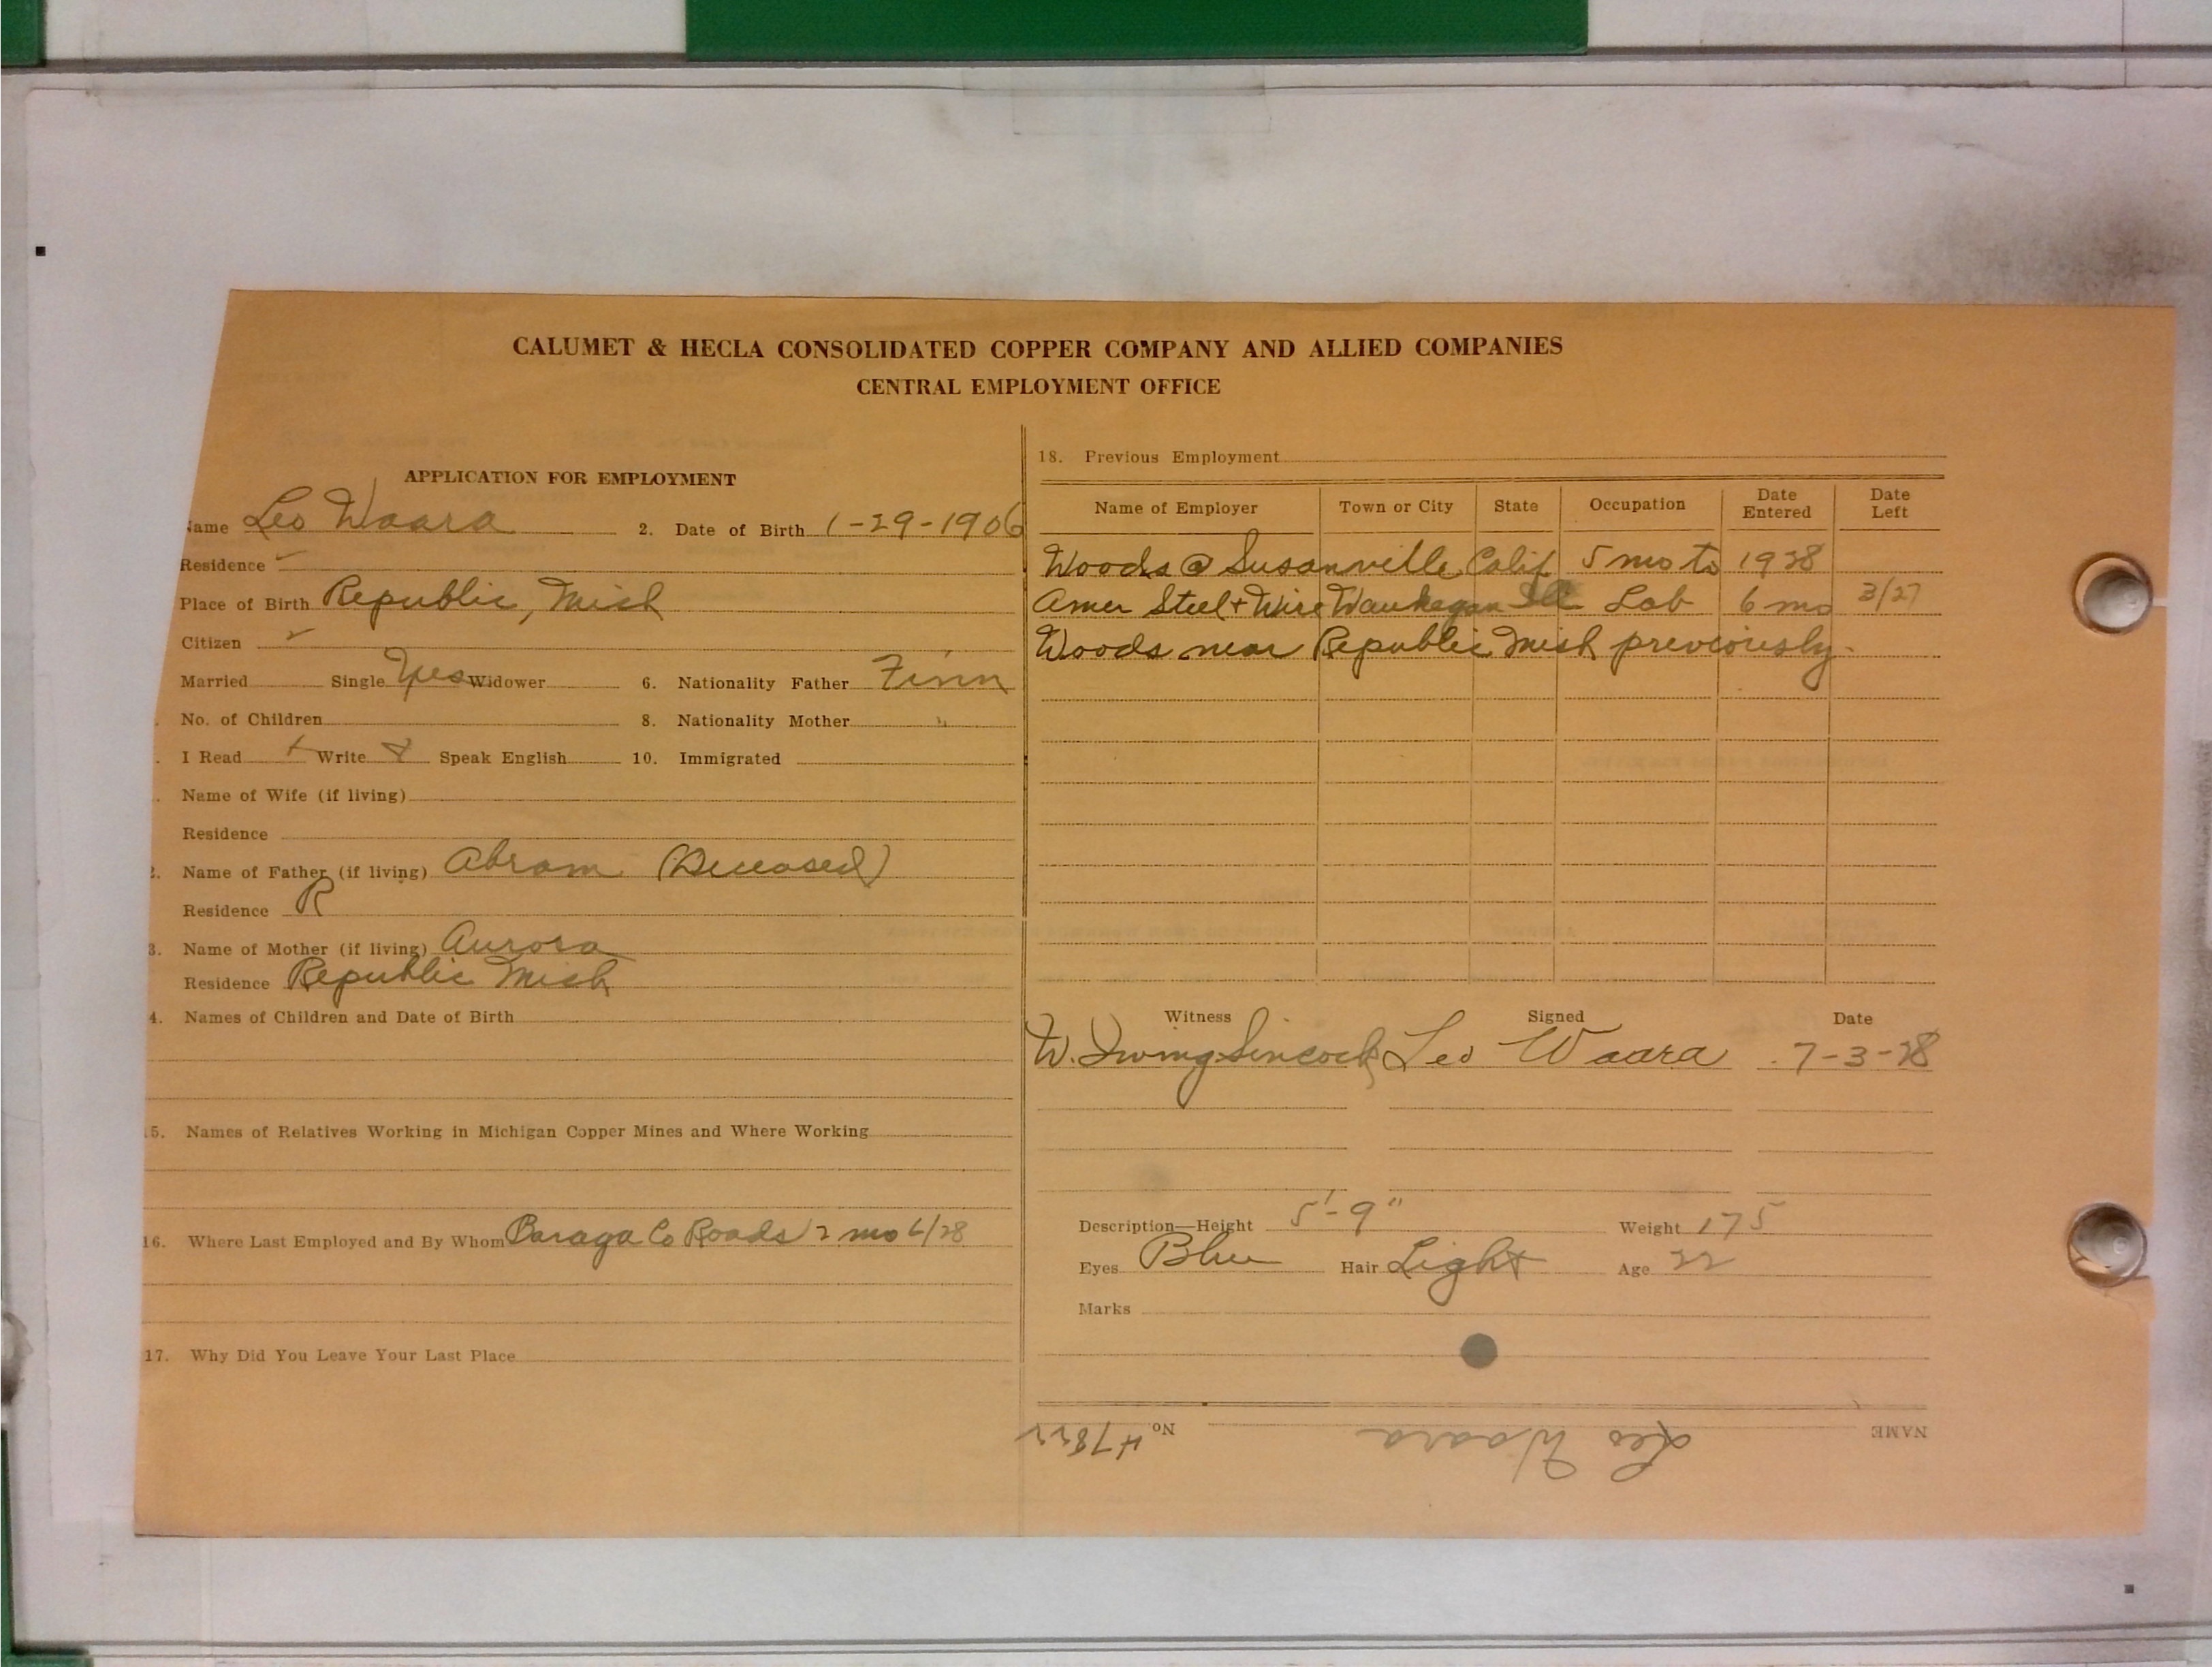 CALUMET & HECLA CONSOLIDATED COPPER COMPANY AND ALLIED COMPANIES
CENTRAL EMPLOYMENT OFFICE
APPLICATION FOR EMPLOYMENT
Name Leo Waara 2. Date of Birth 1-29-1906
Residence
Place of Birth Republic, Mich
Citizen
Married Single Yes Widower 6. Nationality Father Finn
No. of Children 8. Nationality Mother "
I Read Write Speak English 10. Immigrated
Name of Wife (if living)
Residence
2. Name of Father (if living) Abram (Deceased)
Residence R
3. Name of Mother (if living) Aurora
Residence Republic Mich
4. Names of Children and Date of Birth
15. Names of Relatives Working in Michigan Copper Mines and Where Working
16. Where Last Employed and By Whom Baraga Co Roads 2 mo 6/28
17. Why Did You Leave Your Last Place
18. Previous Employment
Name of Employer Town or City State Occupation Date Entered Date Left
Woods @ Susanville Calif 5 mo to 1928
Amer Steel + Wire Waukegan Ill Lab 6 mo 3/27
Woods near Republic Mich previously.
Witness Signed Date
W. Irving Sincock Leo Waara 7-3-28
Description—Height 5'-9" Weight 175
Eyes Blue Hair Light Age 22
Marks
NAME Leo Waara No. 47822